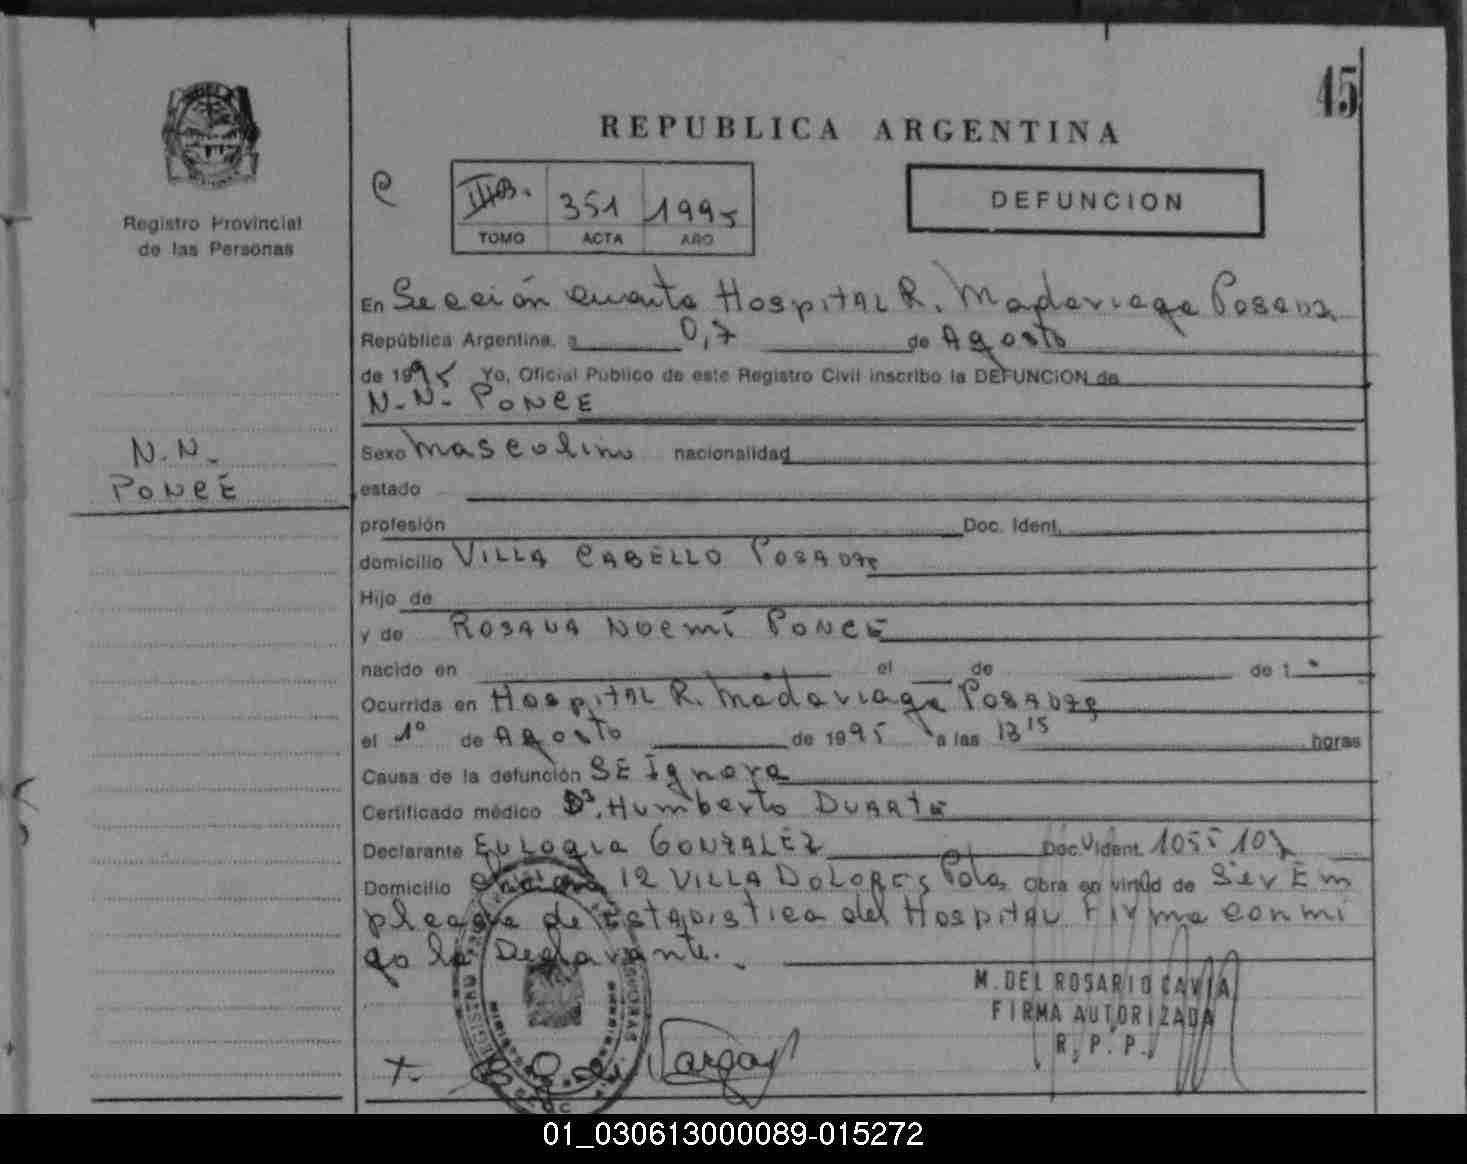 45
REPUBLICA ARGENTINA
Registro Provincial
de las Personas
351 1995
TOMO ACTA AÑO
DEFUNCION
En Sección cuarta Hospital R. Madariaga Posadas
República Argentina, a 0,7 de Agosto
de 1995 Yo, Oficial Público de este Registro Civil inscribo la DEFUNCION de
N-N- PONCE
N.N.
PONCE
Sexo Masculino nacionalidad
estado
profesión Doc. Ident.
domicilio VILLA CABELLO Posadas
Hijo de
y de ROSANA NOEMÍ PONCE
nacido en el de de 1
Ocurrida en Hospital R. Madariaga Posadas
el 1º de Agosto de 1995 a las 13 15 horas
Causa de la defunción SE Ignora
Certificado médico Dr. Humberto DUARTE
Declarante EULOGIA GONZALEZ Doc. Ident.
Domicilio 12 VILLA DOLORES Pdas. Obra en virtud de Ser Em
pleada de Estadistica del Hospital Firma conmi
go la Declarante.
M. DEL ROSARIO CAVIA
FIRMA AUTORIZADA
R. P. P.
01_030613000089-015272